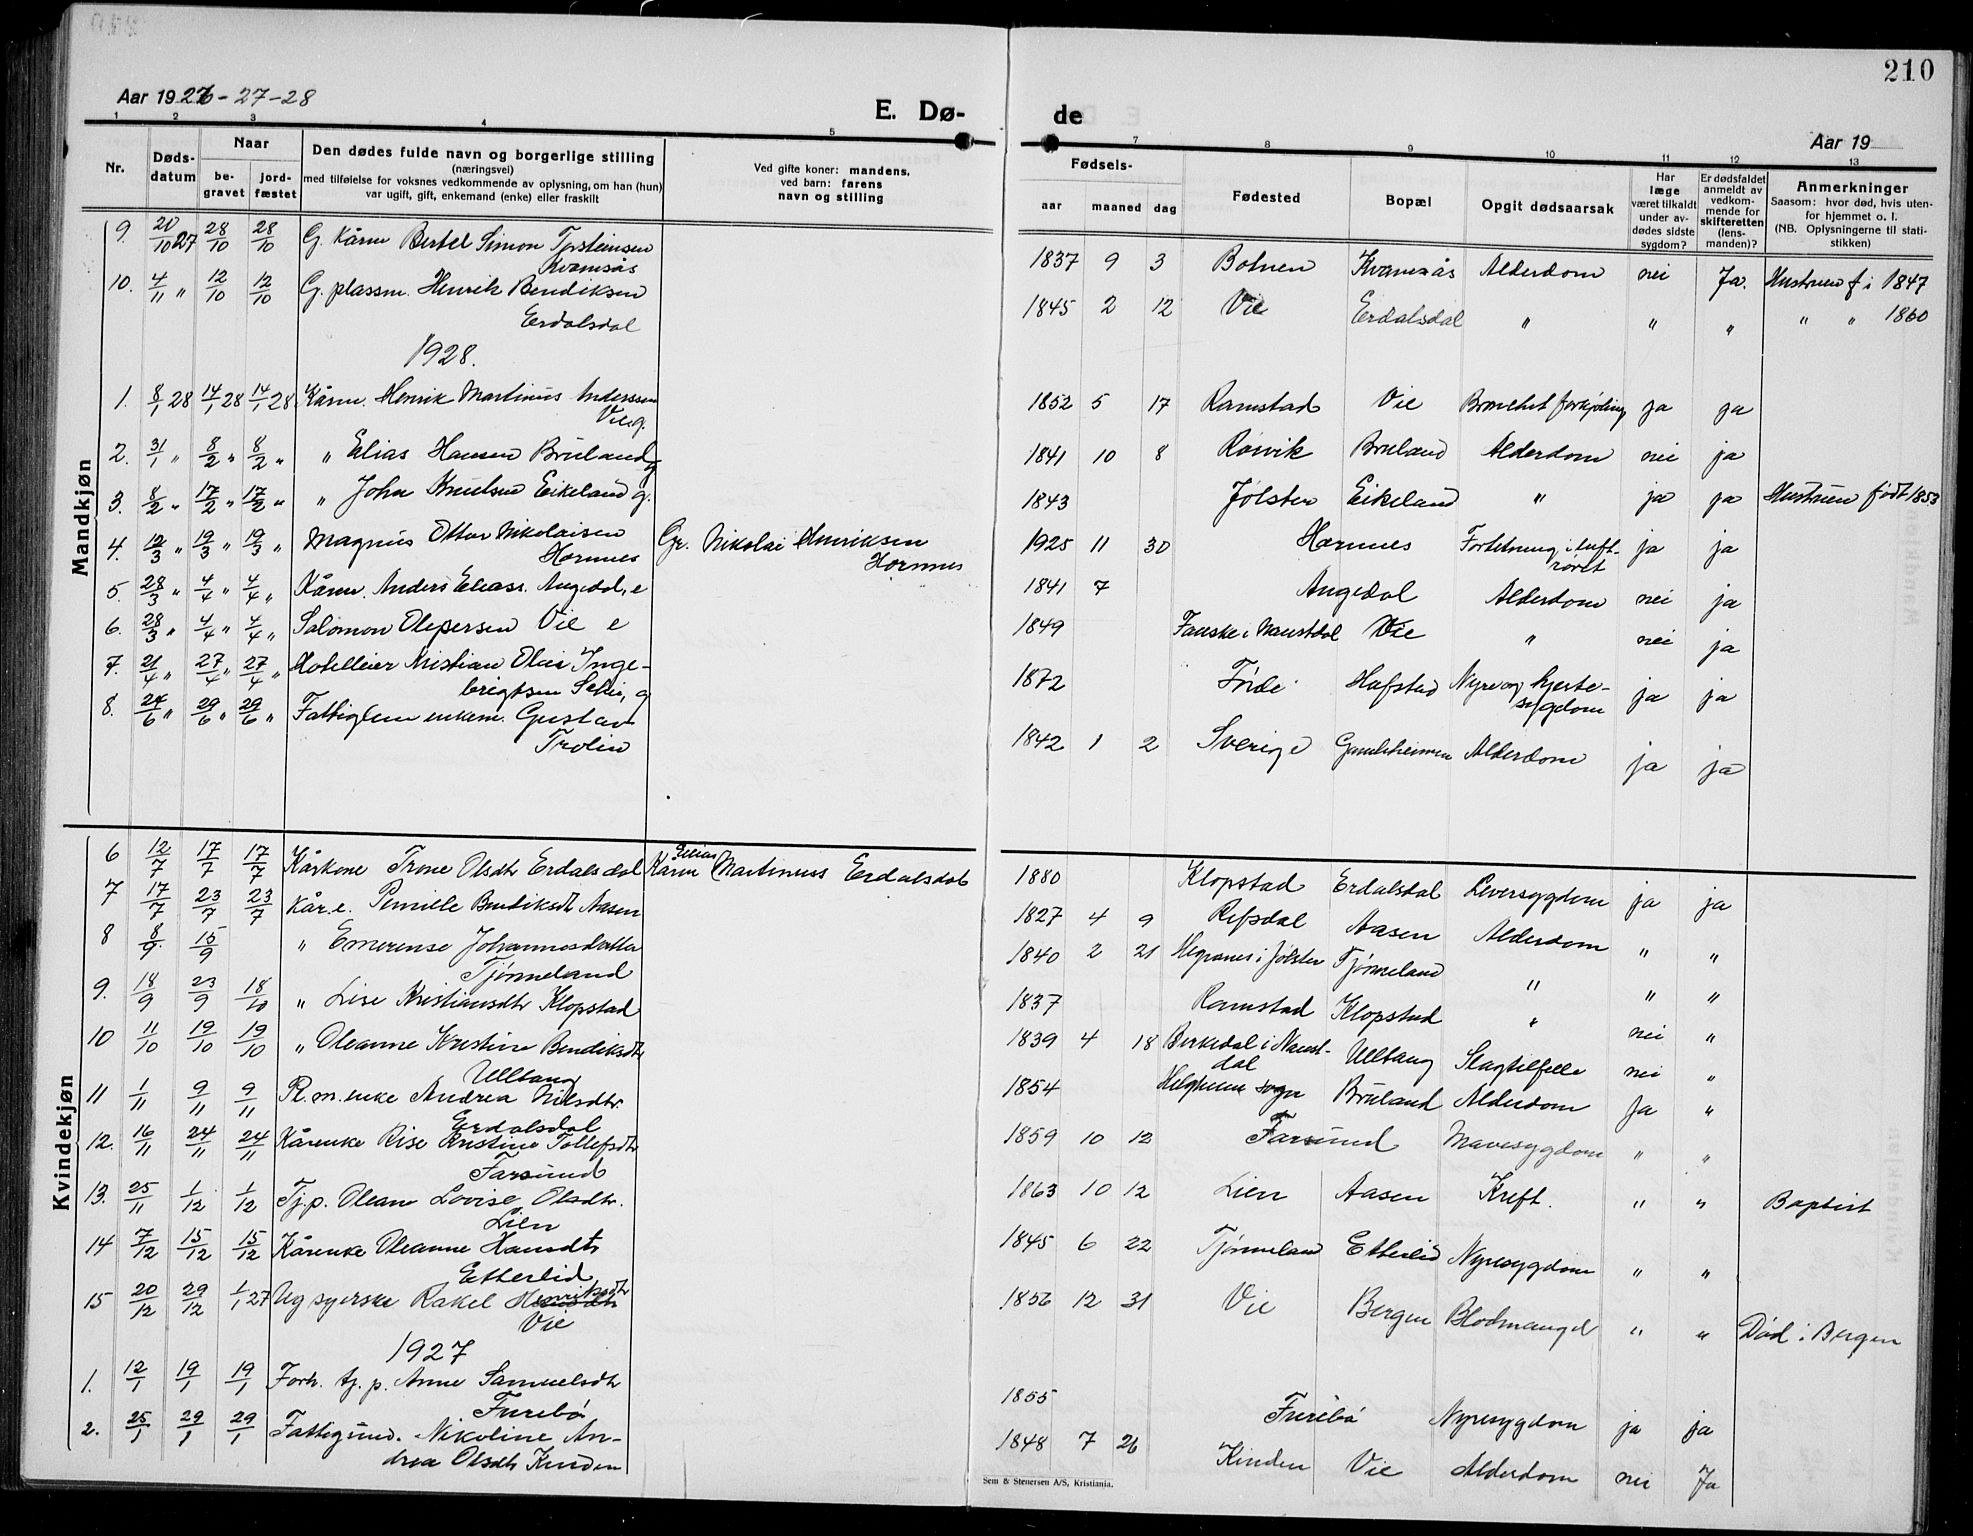 210
Aar 1926-27-28
E. Dø-
de
Aar 19
1 2 3 4 5 7 8 9 10 11 12 13
Nr.
Døds-
datum
Naar
be-
gravet
jord-
fæstet
Den dødes fulde navn og borgerlige stilling
(næringsvei)
med tilføielse for voksnes vedkommende av oplysning, om han (hun)
var ugift, gift, enkemand (enke) eller fraskilt
Ved gifte koner: mandens,
ved barn: farens
navn og stilling
Fødsels-
aar maaned dag
Fødested
Bopæl
Opgit dødsaarsak
Har
læge
været tilkaldt
under av-
dødes sidste
sygdom?
Er dødsfaldet
anmeldt av
vedkom-
mende for
skifteretten
(lens-
manden)?
Anmerkninger
Saasom: hvor død, hvis uten-
for hjemmet o. l.
(NB. Oplysningerne til stati-
stikken)
Mandkjøn
9. 20/10 27 28/10 28/10 G. Kårm Bertel Simon Torsteinsen
Kvamsås
1837 9 3 Botnen Kvamsås Alderdom nei Ja. Hustruen f. i 1847
10. 4/11 " 12/10 12/10 G. plassm. Henrik Bendiksen
Erdalsdal
1845 2 12 Vie Erdalsdal " " " " " 1860
1928.
1. 8/1 28 14/1 28 14/1 28 Kårm. Henrik Martinus Anderssen
Vie g.
1852 5 17 Ramstad Vie Bronchit forkjøling ja ja
2. 31/1 " 8/2 " 8/2 " " Elias Hansen Bruland g
1841 10 8 Røivik Bruland Alderdom nei ja
3. 8/2 " 17/2 " 17/2 " " John Knutsen Eikeland g.
1843 Jølster Eikeland " ja ja Hustruen født 1853
4. 12/3 " 19/3 " 19/3 " Magnus Ottar Nikolaisen
Hornnes
Gr. Nikolai Henriksen
Hornnes
1925 11 30 Hornnes Fortetning i luft-
røret
ja ja
5. 28/3 " 4/4 " 4/4 " Kårm. Anders Eliass. Angedal, e
1841 7 Angedal Alderdom nei ja
6. 28/3 " 4/4 " 4/4 " Salomon Olepersen Vie e
1849 Fauske i Naustdal Vie " nei ja
7. 21/4 " 27/4 " 27/4 " Hotelleier Kristian Olai Inge-
brigtsen Sellie, g
1872 Førde Hafstad Nyre og hjerte-
sygdom
ja ja
8. 24/6 " 29/6 " 29/6 " Fattiglem enkem. Gustav
Trolin
1842 1 2 Sverige Gamleheimen Alderdom ja ja
Kvindekjøn
6 12/7 17/7 17/7 Kårkone Trone Olsdtr Erdalsdal Kårm Elias Martinuss Erdalsdal
1880 Klopstad Erdalsdal Leversygdom ja ja
7 17/7 23/7 23/7 Kår.e. Pernille Bendiksdtr Aasen
1827 4 9 Refsdal Aasen Alderdom " "
8 8/9. 15/9 " Emerense Johannesdatter
Tjønneland
1840 2 21 Hegranes i Jølster Tjønneland " " "
9. 18/9 23/9 18/10 " Lise Kristiansdtr Klopstad
1837 Ramstad Klopstad " nei "
10 11/10 19/10 19/10 " Oleanne Kristine Bendiksdtr
Ulltang
1839 4 18 Birkedal i Naust-
dal
Ulltang Slagtilfelle nei "
11 1/11 9/11 9/11 Pl.m.enke Andrea Nilsdtr.
Erdalsdal
1854 Helgheim sogn Bruland Alderdom Ja "
12. 16/11 24/11 24/11 Kårenke Rise Kristine Tollefsdtr
Farsund
1859 10 12 Farsund Mavesygdom " "
13. 25/11 1/12 1/12 Tj.p. Olean Lovise Olsdtr.
Lien
1863 10 12 Lien Aasen Kreft. " " Baptist
14 7/12 15/12 15/12 Kårenke Oleanne Hansdtr
Etterlid
1845 6 22 Tjønneland Etterlid Nyresygdom " "
15 20/12 29/12 1/1 27 Ug syerske Rakel Henriksdtr
Vie
1856 12 31 Vie Bergen Blodmangel " " Død i Bergen
1927
1. 12/1 19/1 19/1 Forh. tj. p. Anne Samuelsdtr
Furebø
1855 Furebø Nyresygdom ja ja
2. 25/1 29/1 29/1 Fattigund. Nikoline An-
drea Olsdtr Kinden
1848 7 26 Kinden Vie Alderdom nei Ja
Sem & Stenersen A/S, Kristiania.